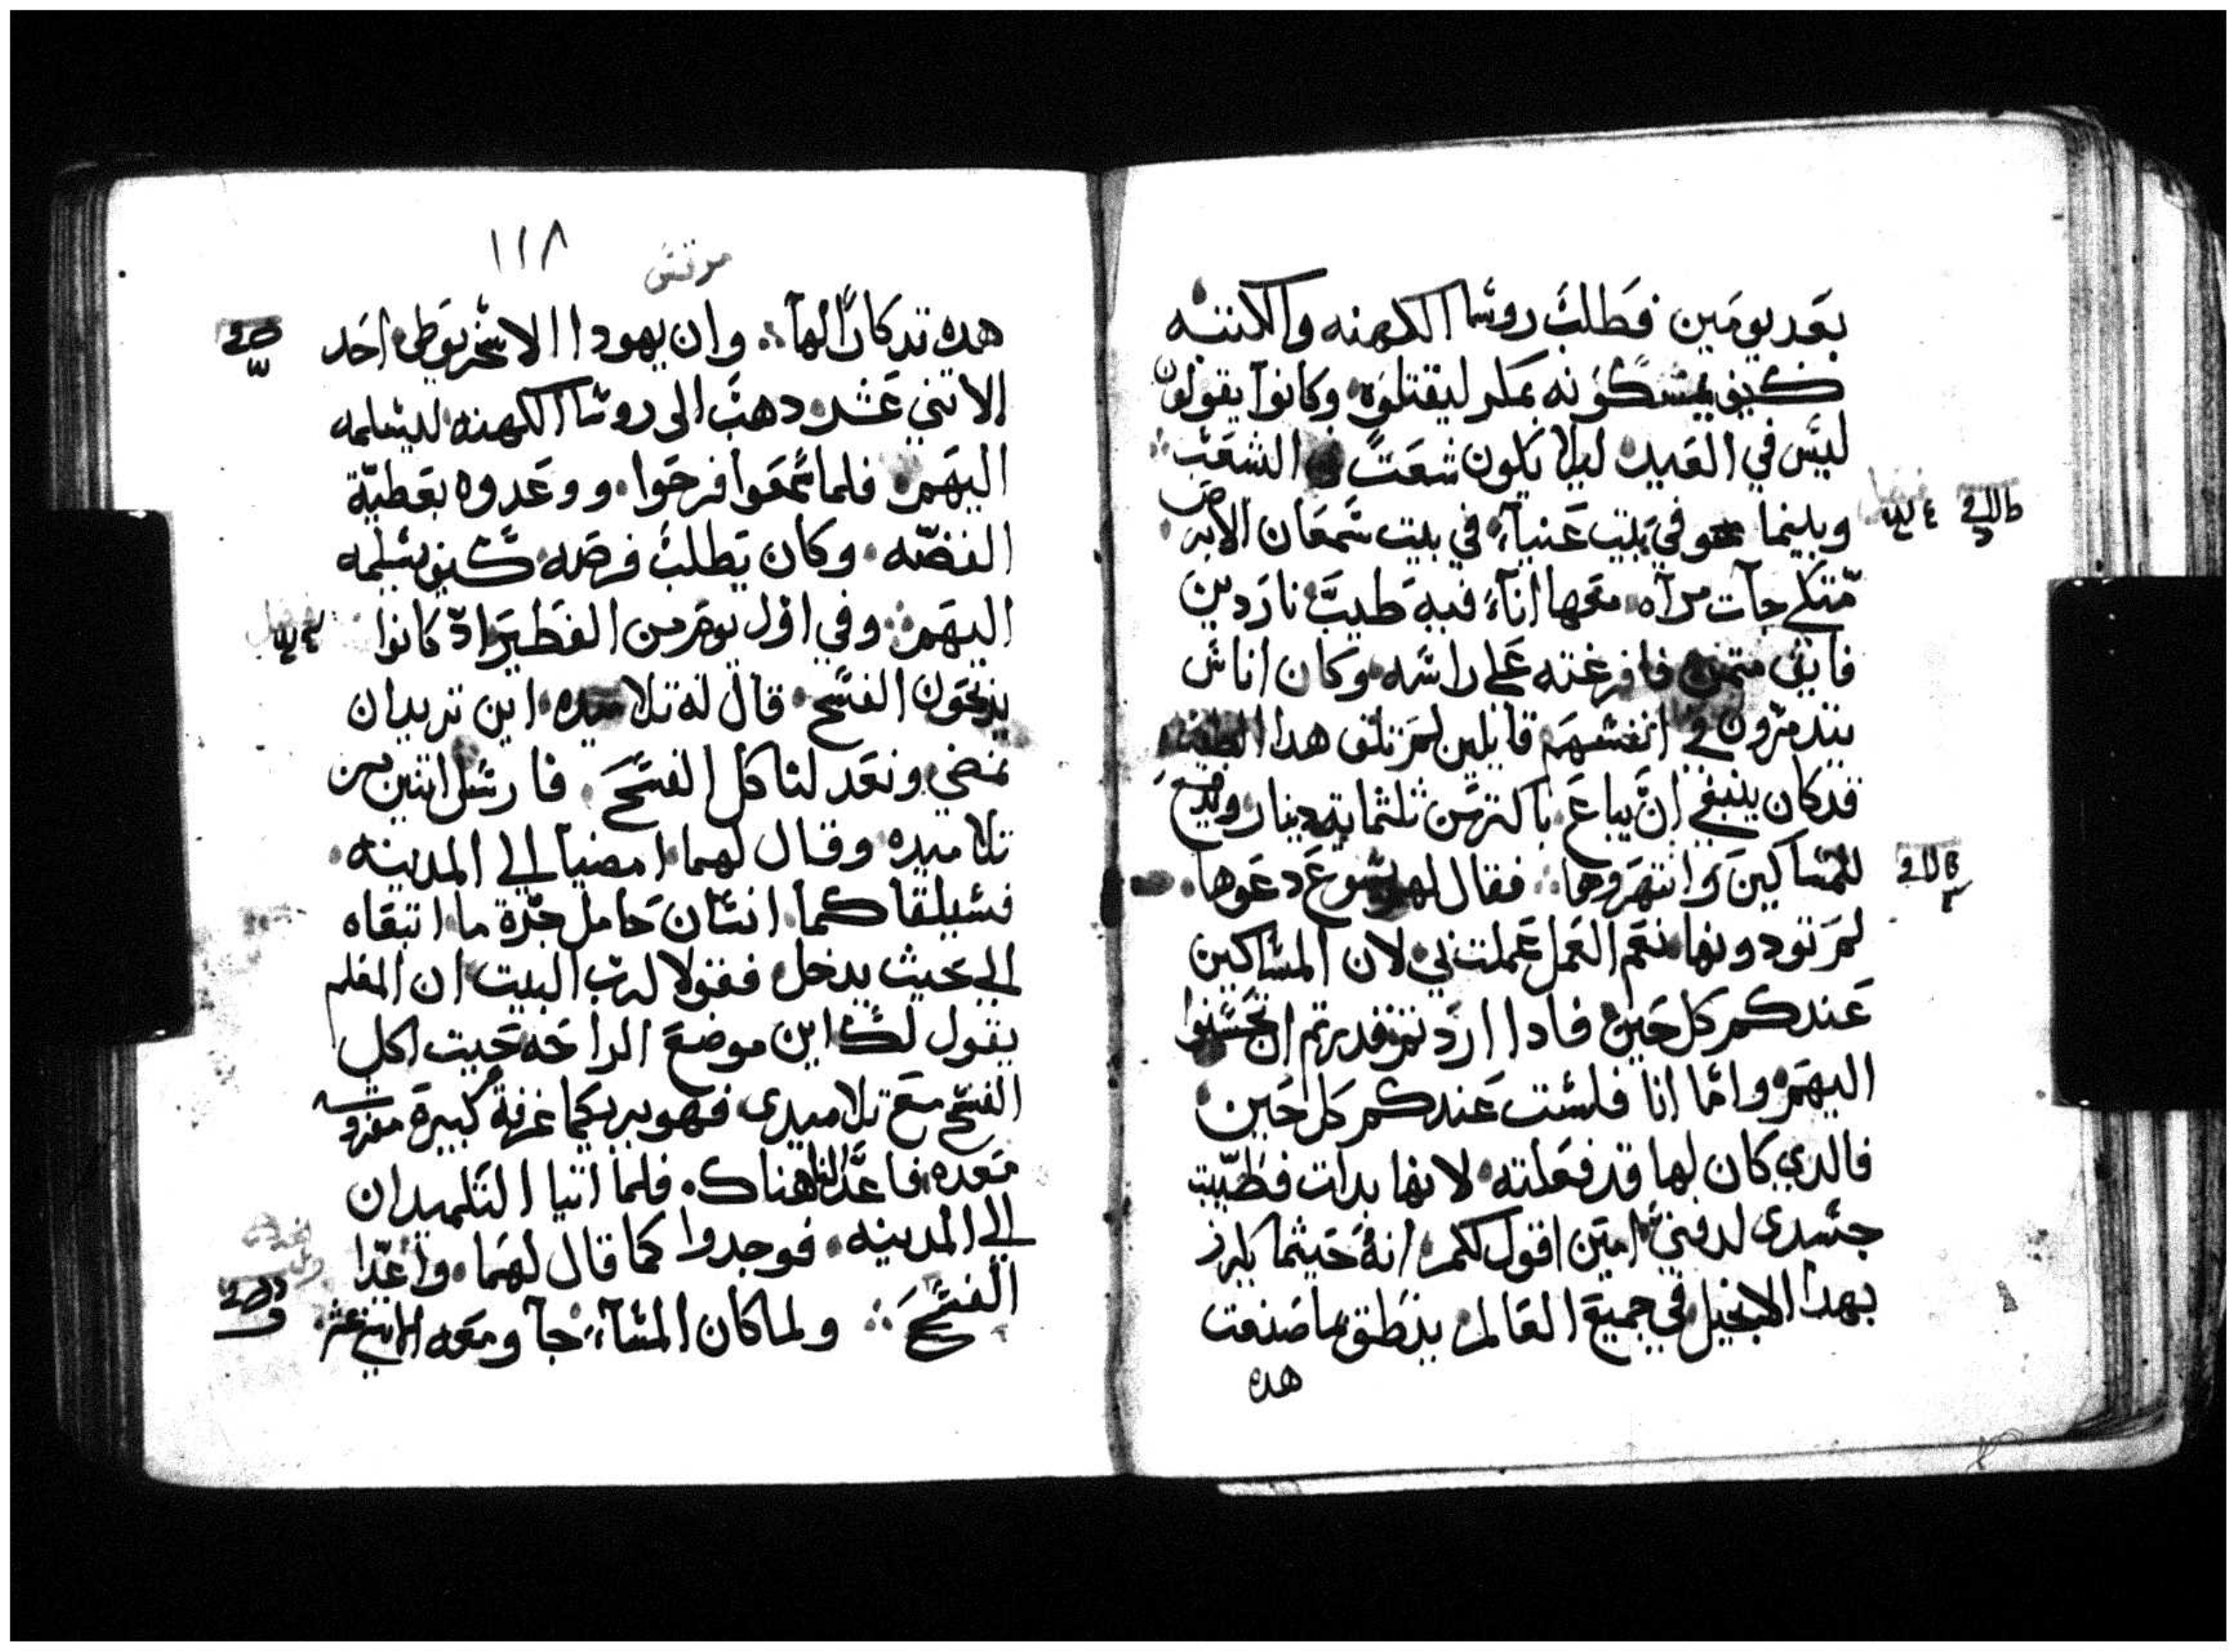 بعد يومين فطلب روسا الكهنه والكتبه
كيف يمسكونه بمكر ليقتلوه وكانوا يقولون
ليس في العيد ليلا يكون شعت في الشعب
وبينما هو في بيت عنيآء في بيت سمعان الابرص
متكي جآت مراه معها اناء فيه طيب ناردين
فايق متمن فافرغته علي راسه وكان اناس
يتدمرون في انفسهم قايلين لم تلف هدا الطيب
قد كان ينبغي ان يباع باكتر من تلثمايه دينار ويدفع
للمساكين وانتهروها فقال لهم يسوع دعوها
لم تودونها نعم العمل عملت بي لان المساكين
عندكم كل حين فادا اردتم قدرتم ان تحسنوا
اليهم واما انا فلست عندكم كل حين
فالدي كان لها قد فعلته لانها بدات فطيبت
جسدى لدفني امين اقول لكم انه حيثما يكرز
بهدا الانجيل في جميع العالم ينطق بما صنعت
هده
١١٨
مرقس
هده تدكارًا لها وان يهودا الاسخريوطي احد
الاتني عشر دهب الى روسا الكهنه ليسلمه
اليهم فلما سمعوا فرحوا ووعدوه بعطية
الفضه وكان يطلب فرصه كيف يسلمه
اليهم وفي اول يوم من الفطير اد كانوا
يذبحون الفسح قال له تلاميده اين تريد ان
نمضي ونعد لتاكل الفسح فارسل اتنين من
تلاميده وقال لهما امضيا الي المدينه
فسيلقاكما انسان حامل جرة ما اتبعاه
الي حيث يدخل فقولا لرب البيت ان المعلم
يقول لك اين موضع الراحه حيت اكل
الفسح مع تلاميدى فهو يريكما غرفة كبيرة مفروشه
معده فاعدا لنا هناك فلما اتيا التلميدان
الي المدينه فوجدوا كما قال لهما واعدا
الفسح ولما كان المسآء جآ ومعه الاتني عشر